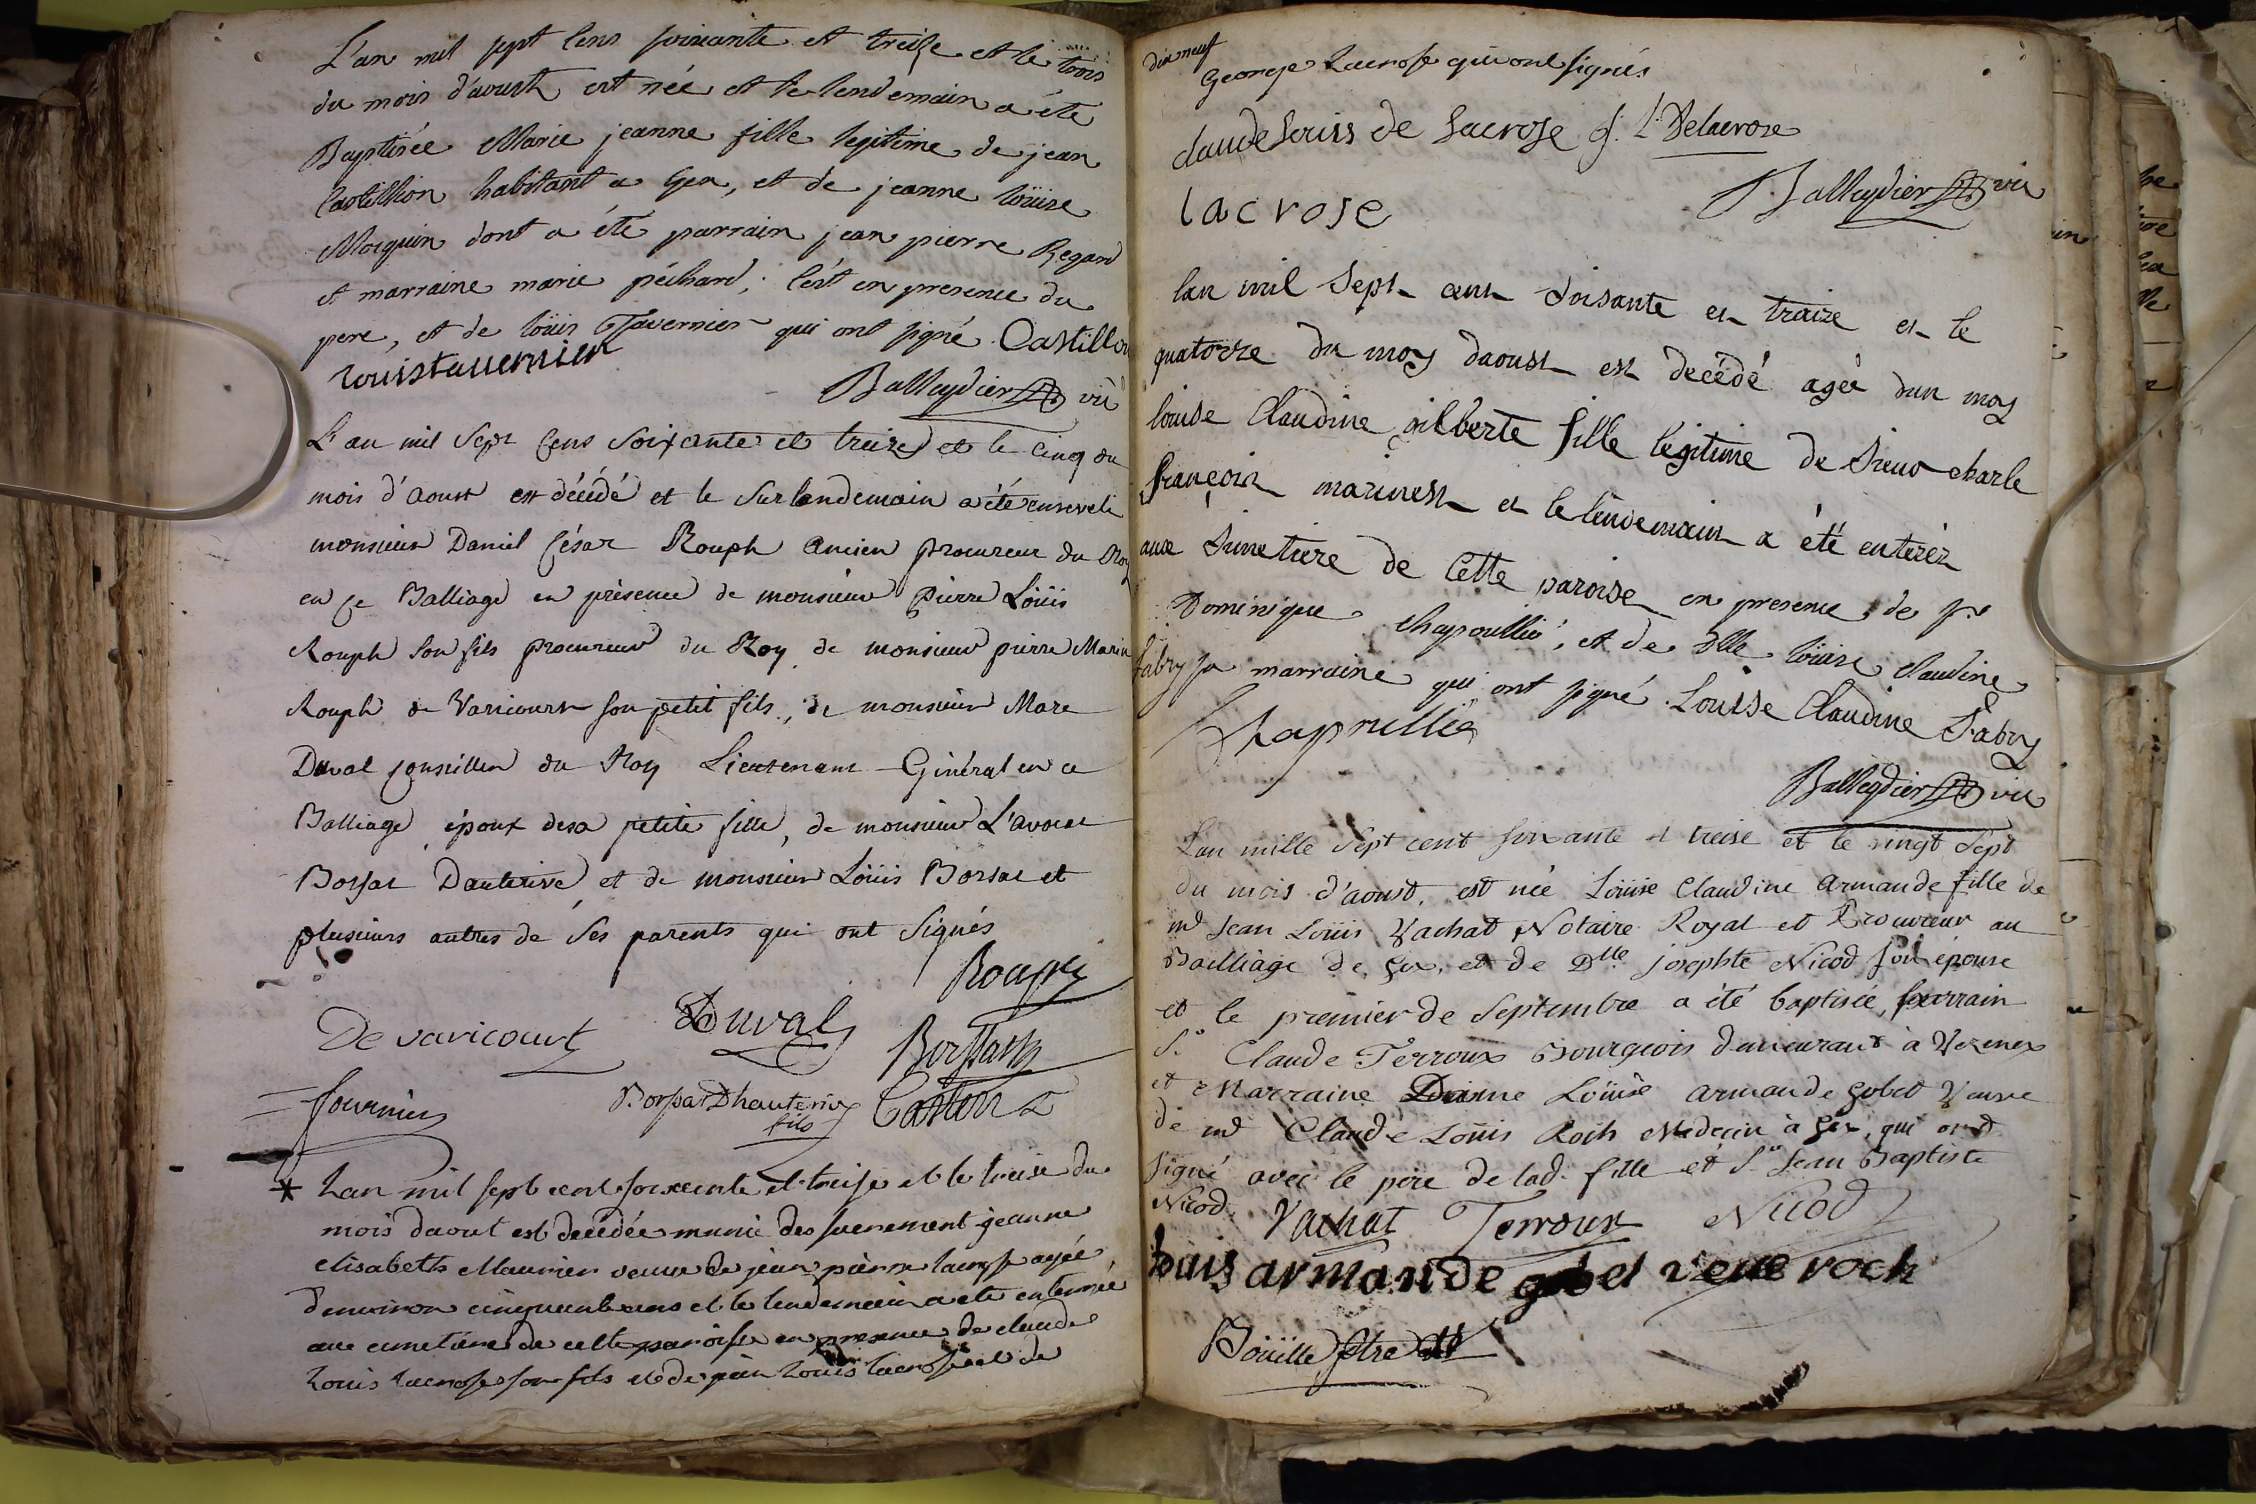 L'an mil sept cens soixante et treize et le trois
du mois d'aoust est née et le lendemain a été
Baptisée Marie jeanne fille legitime de jean
Castillion habitant a Gex, et de jeanne loüise
Moquin dont a été parrain jean pierre Regard
et marraine marie péchard; C'est en presence du
pere, et de loüis Tavernier qui ont signé Castillon
louistavernier
Balleydier vic
L'an mil sept Cens soixante et treize et le cinq du
mois d'aoust est décédé et le surlendemain a été enseveli
monsieur Daniel César Rouph ancien procureur du Roy
en ce Balliage en présence de monsieur pierre Loüis
Rouph son fils procureur du Roy, de monsieur pierre Marin
Rouph de Varicourt son petit fils, de monsieur Marc
Duval conseiller du Roy Lieutenant Général en ce
Balliage, époux de sa petite fille, de monsieur L'avocat
Borsat Dauterive, et de monsieur Loüis Borsat et
plusieurs autres de ses parents qui ont signés
Rouph
De varicourt Duval Borssat
fournier Borsat Dhauterive fils Castin
* Lan mil sept cent soixante et treise et le treise du
mois daout est decédée munie des sacrement jeanne
elisabeth Maunier veuve de jean pierre lacrose agée
denviron cinquante ans et le lendemain a été enterrée
au cimetière de cette paroisse en presence de claude
Louis Lacrose son fils et de jean Louis lacrose et de
dix neuf
George Lacrose qui ont signés
claude louis de lacrose J. L. Delacrose
lacrose
Balleydier vic
lan mil sept cent soisante et traize et le
quatorze du moy daoust est decédé agée dun moy
louise Claudine gilberte fille légitime de sieur charle
françois marinest et le lendemain a été enterér
aux simetiere de Cette paroise en presence de sr
Dominique Chapoullié, et de Dlle loüise Claudine
fabry sa marraine qui ont signé Louise Claudine Fabry
Chapoullié
Balleydier vic
Lan mille Sept cent soixante et treise et le vingt Sept
du mois d'aoust, est née Loüise Claudine armande fille de
me Jean Loüis Vachat Notaire Royal et Procureur au
Bailliage de Gex, et de Dlle josephte Nicod son épouse
et le premier de Septembre a été baptisée, parrain
Sr Claude Terroux Bourgeois demeurant à Vezenex
et Marraine Dame Loüise armande gobet Veuve
de me Claude Loüis Roch Médecin à Gex, qui ont
signé avec le père de lad. fille et Sr Jean Baptiste
Nicod. Vachat Terroux Nicod
louis armande gobel veve roch
Boüille ptre